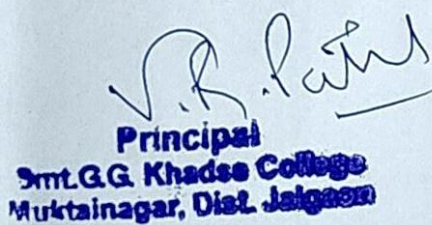 V.R. Patil
Principal
Smt.G.G. Khadse College
Muktainagar, Dist. Jalgaon